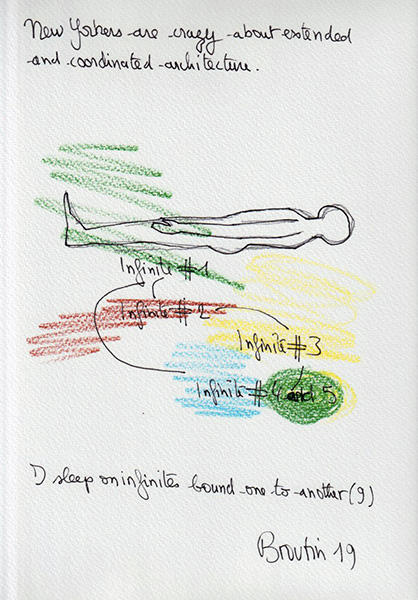 New Yorkers are crazy about extended
and coordinated architecture.
Infinite #1
Infinite #2
Infinite #3
Infinite #4 and 5
I sleep on infinites bound one to another (9)
Broutin 19